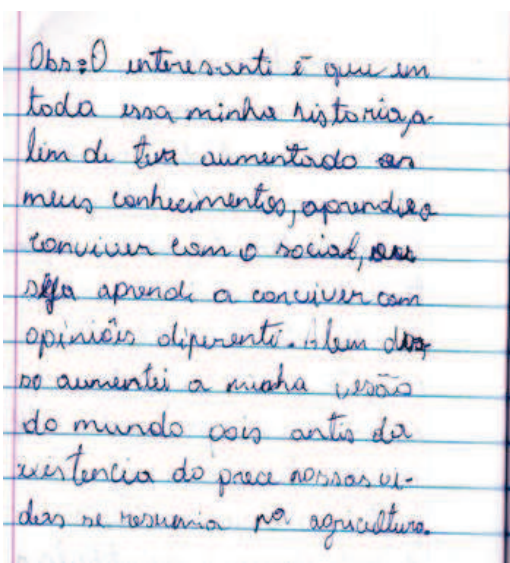 Obs: O interesante é que em
toda essa minha historia, a-
lem de ter aumentado os
meus conhecimentos, aprendi a
conviver com o social, ou
seja aprende a conviver com
opiniões diferente. Alem dis-
so aumentei a minha visão
do mundo pois antes da
existencia do prece nossas vi-
das se resumia na agricultura.